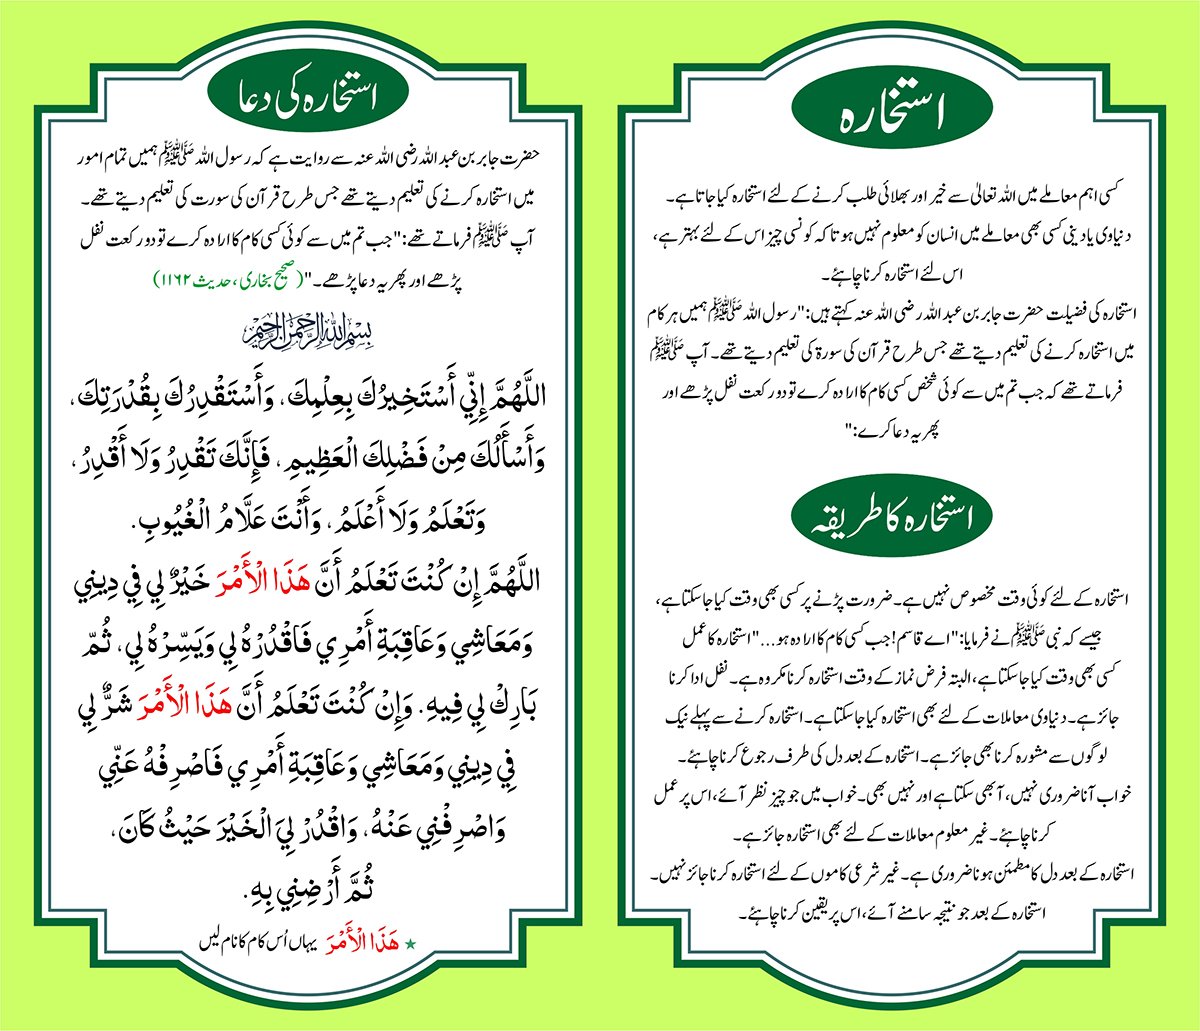 استخارہ
کسی اہم معاملے میں اللہ تعالیٰ سے خیر اور بھلائی طلب کرنے کے لئے استخارہ کیا جاتا ہے۔
دنیاوی یا دینی کسی بھی معاملے میں انسان کو معلوم نہیں ہوتا کہ کونسی چیز اس کے لئے بہتر ہے،
اس لئے استخارہ کرنا چاہئے۔
استخارہ کی فضیلت حضرت جابر بن عبد اللہ رضی اللہ عنہ کہتے ہیں: "رسول اللہ ﷺ ہمیں ہر کام
میں استخارہ کرنے کی تعلیم دیتے تھے جس طرح قرآن کی سورۃ کی تعلیم دیتے تھے۔ آپ ﷺ
فرماتے تھے کہ جب تم میں سے کوئی شخص کسی کام کا ارادہ کرے تو دو رکعت نفل پڑھے اور
پھر یہ دعا کرے: "
استخارہ کا طریقہ
استخارہ کے لئے کوئی وقت مخصوص نہیں ہے۔ ضرورت پڑنے پر کسی بھی وقت کیا جا سکتا ہے،
جیسے کہ نبی ﷺ نے فرمایا: "اے قاسم! جب کسی کام کا ارادہ ہو..." استخارہ کا عمل
کسی بھی وقت کیا جا سکتا ہے، البتہ فرض نماز کے وقت استخارہ کرنا مکروہ ہے۔ نفل ادا کرنا
جائز ہے۔ دنیاوی معاملات کے لئے بھی استخارہ کیا جا سکتا ہے۔ استخارہ کرنے سے پہلے نیک
لوگوں سے مشورہ کرنا بھی جائز ہے۔ استخارہ کے بعد دل کی طرف رجوع کرنا چاہئے۔
خواب آنا ضروری نہیں، آ بھی سکتا ہے اور نہیں بھی۔ خواب میں جو چیز نظر آئے، اس پر عمل
کرنا چاہئے۔ غیر معلوم معاملات کے لئے بھی استخارہ جائز ہے۔
استخارہ کے بعد دل کا مطمئن ہونا ضروری ہے۔ غیر شرعی کاموں کے لئے استخارہ کرنا جائز نہیں۔
استخارہ کے بعد جو نتیجہ سامنے آئے، اس پر یقین کرنا چاہئے۔
استخارہ کی دعا
حضرت جابر بن عبد اللہ رضی اللہ عنہ سے روایت ہے کہ رسول اللہ ﷺ ہمیں تمام امور
میں استخارہ کرنے کی تعلیم دیتے تھے جس طرح قرآن کی سورت کی تعلیم دیتے تھے۔
آپ ﷺ فرماتے تھے: "جب تم میں سے کوئی کسی کام کا ارادہ کرے تو دو رکعت نفل
پڑھے اور پھر یہ دعا پڑھے۔" (صحیح بخاری، حدیث ۱۱۶۲)
بِسْمِ اللهِ الرَّحْمٰنِ الرَّحِيْمِ
اللَّهُمَّ إِنِّي أَسْتَخِيرُكَ بِعِلْمِكَ، وَأَسْتَقْدِرُكَ بِقُدْرَتِكَ،
وَأَسْأَلُكَ مِنْ فَضْلِكَ الْعَظِيمِ، فَإِنَّكَ تَقْدِرُ وَلَا أَقْدِرُ،
وَتَعْلَمُ وَلَا أَعْلَمُ، وَأَنْتَ عَلَّامُ الْغُيُوبِ.
اللَّهُمَّ إِنْ كُنْتَ تَعْلَمُ أَنَّ هَذَا الْأَمْرَ خَيْرٌ لِي فِي دِينِي
وَمَعَاشِي وَعَاقِبَةِ أَمْرِي فَاقْدُرْهُ لِي وَيَسِّرْهُ لِي، ثُمّ
بَارِكْ لِي فِيهِ. وَإِنْ كُنْتَ تَعْلَمُ أَنَّ هَذَا الْأَمْرَ شَرٌّ لِي
فِي دِينِي وَمَعَاشِي وَعَاقِبَةِ أَمْرِي فَاصْرِفْهُ عَنِّي
وَاصْرِفْنِي عَنْهُ، وَاقْدُرْ لِيَ الْخَيْرَ حَيْثُ كَانَ،
ثُمَّ أَرْضِنِي بِهِ.
★ هَذَا الْأَمْرَ یہاں اُس کام کا نام لیں